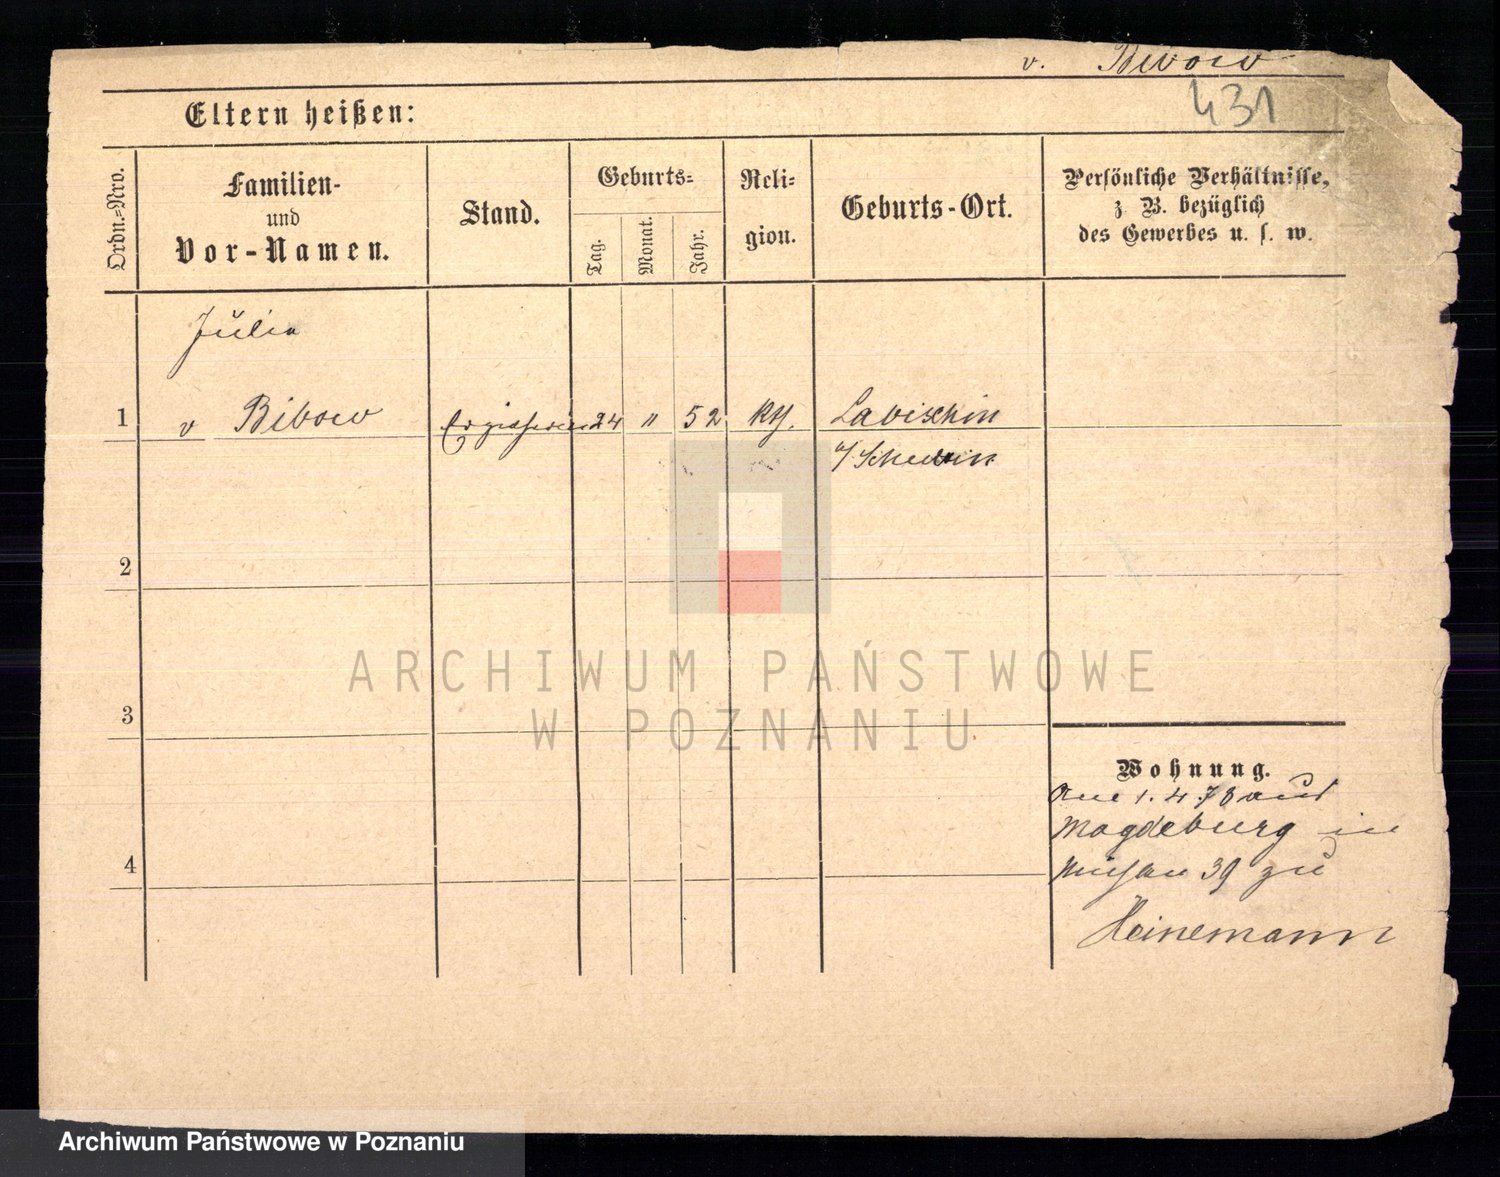 v. Bibow
431
Eltern heißen:
Ordn.-Nro.
Familien-
und
Vor-Namen.
Stand.
Geburts-
Tag.
Monat.
Jahr.
Reli-
gion.
Geburts-Ort.
Persönliche Verhältnisse,
z B. bezüglich
des Gewerbes u. s. w.
Julia
1 v Bibow 24 " 52
2
3
4
Wohnung.
1. 4. 78 aus
Magdeburg in
39 zu
Heinemann
ARCHIWUM PAŃSTWOWE
W POZNANIU
Archiwum Państwowe w Poznaniu